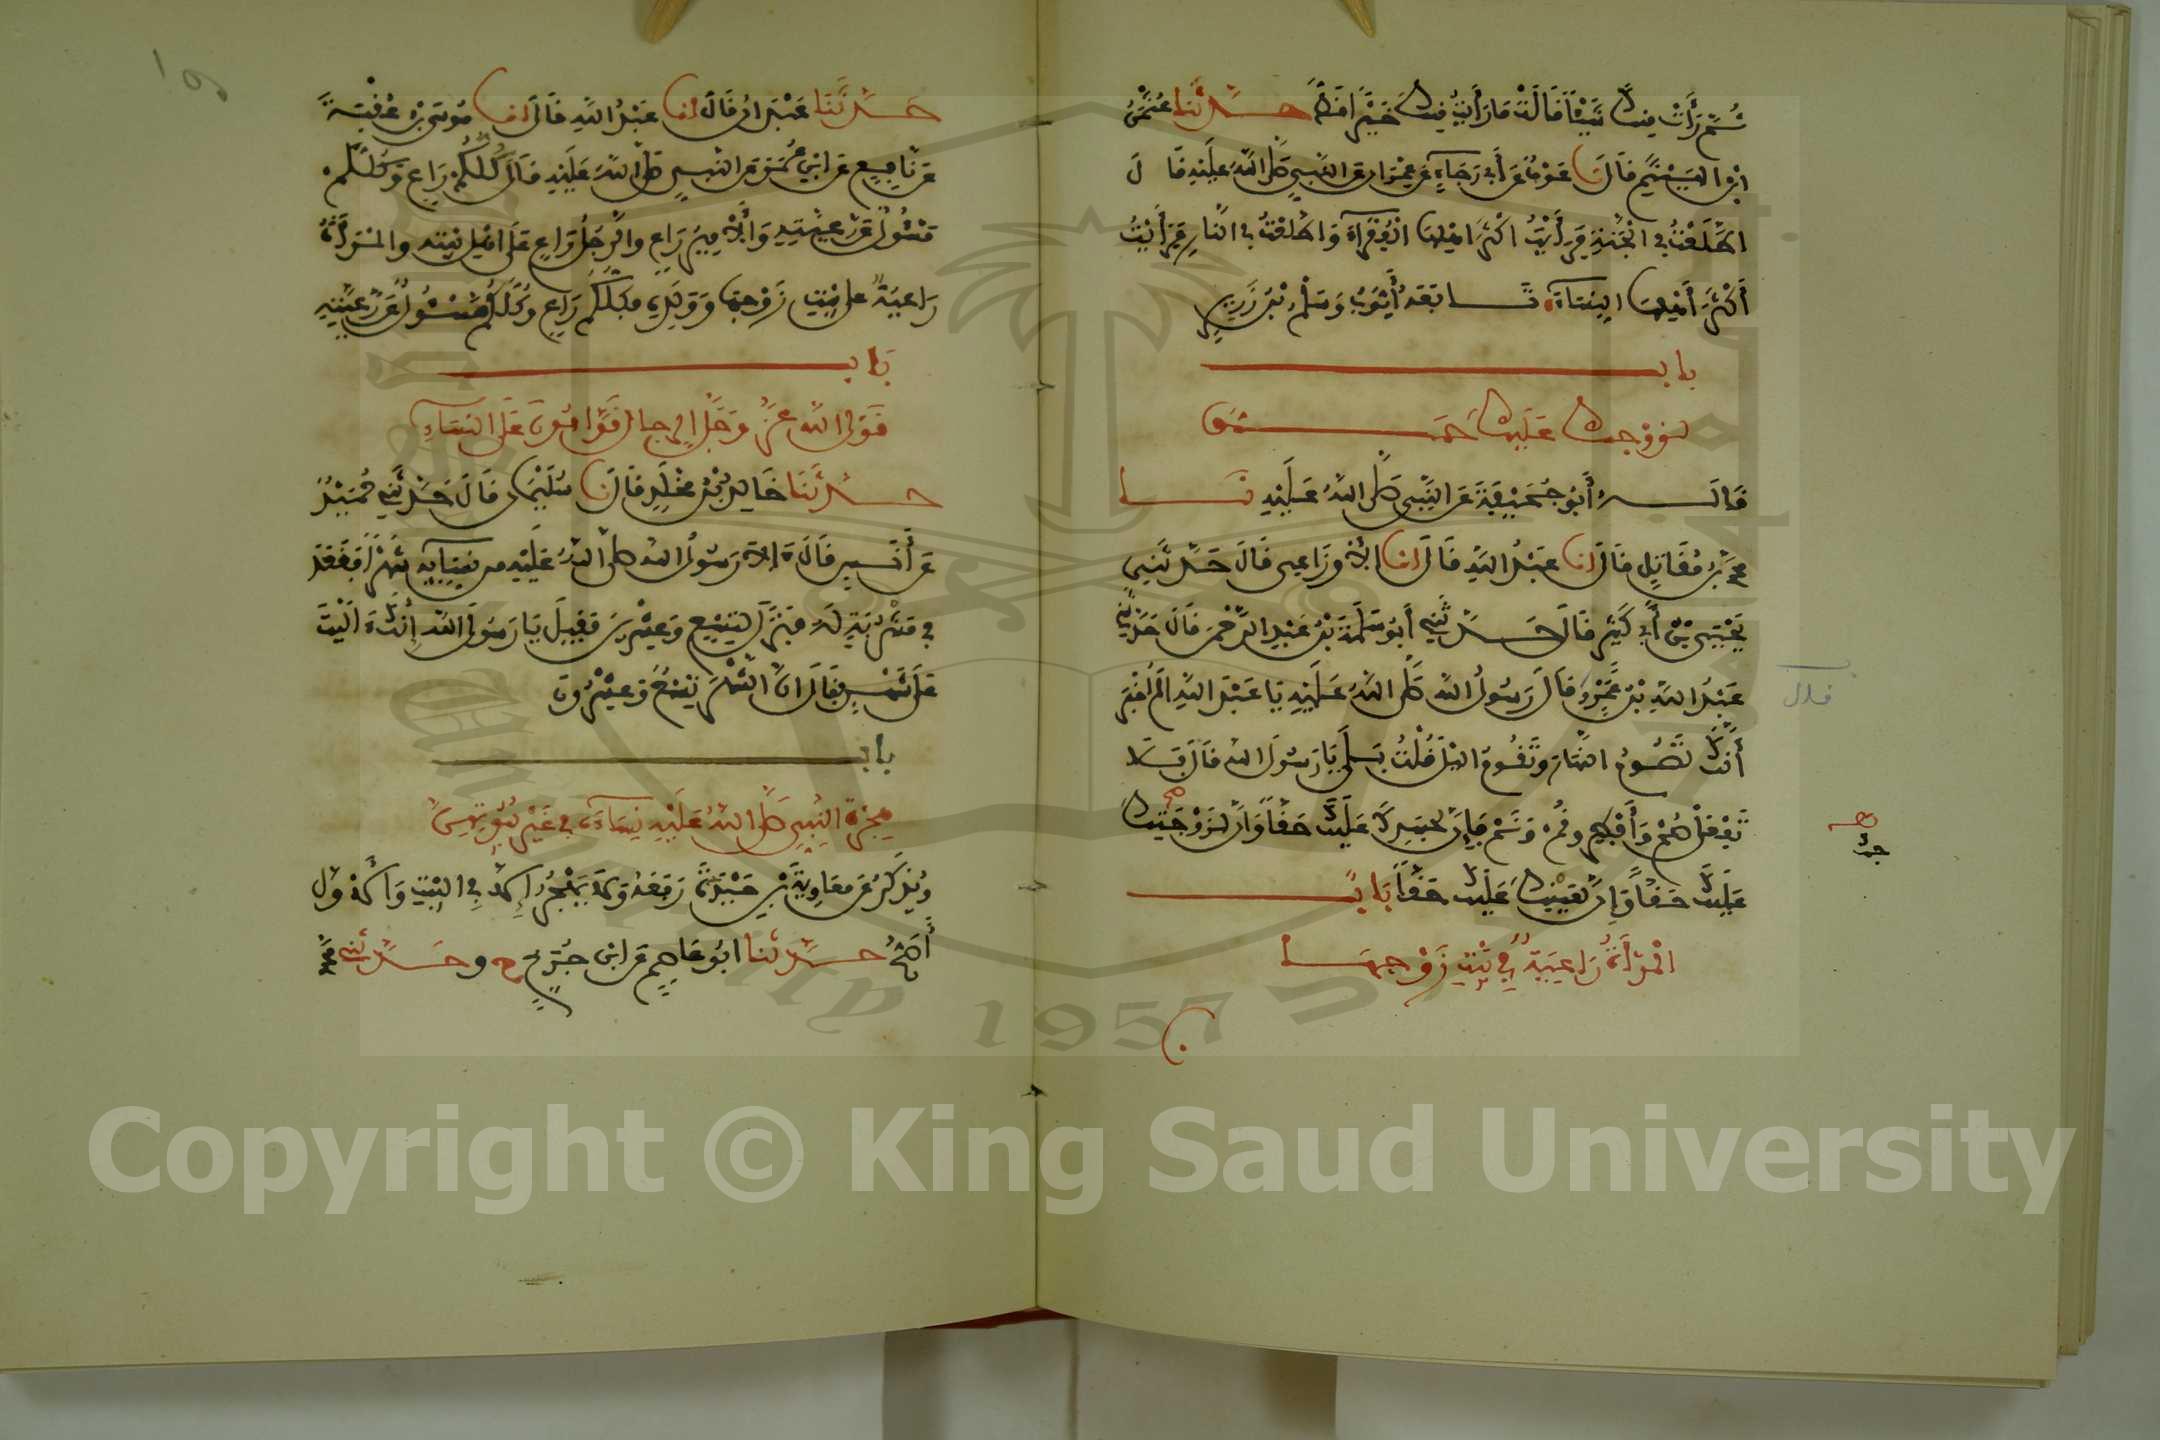 ثُمَّ رَأَتْ مِنْكَ شَيْئًا قَالَتْ مَا رَأَيْتُ مِنْكَ خَيْرًا قَطُّ حَدَّثَنَا عُثْمَنُ
ابْنُ الهَيْثَمِ قَالَ نا عَوْفٌ عَنْ أَبِي رَجَاءٍ عَنْ عِمْرَان عَنِ النَّبِيِّ صَلَّى اللَّهُ عَلَيْهِ قَا لَ
اطَّلَعْتُ فِي الْجَنَّةِ فَرَأَيْتُ أَكْثَرَ أَهْلِهَا الْفُقَرَآءَ وَاطَّلَعْتُ فِي النَّارِ فَرَأَيْتُ
أَكْثَرَ أَهْلِهَا النِّسَآءَ تَابَعَهُ أَيُّوبُ وَسَلْمُ بْنُ زَرِيرٍ
بَابٌ
لِزَوْجِكَ عَلَيْكَ حَقٌّ
قَالَهُ أَبُو جُحَيْفَةَ عَنِ النَّبِيِّ صَلَّى اللَّهُ عَلَيْهِ نَا
مُحَمَّدُ بْنُ مُقَاتِلٍ قَالَ أنا عَبْدُ اللَّهِ قَالَ أنا الأَوْزَاعِيُّ قَالَ حَدَّثَنِي
يَحْيَى بْنُ أَبِي كَثِيرٍ قَالَ حَدَّثَنِي أَبُو سَلَمَةَ بْنُ عَبْدِ الرَّحْمَنِ قَالَ حَدَّثَنِي
عَبْدُ اللَّهِ بْنُ عَمْرٍو قَالَ رَسُولُ اللَّهِ صَلَّى اللَّهُ عَلَيْهِ يَا عَبْدَ اللَّهِ أَلَمْ أُخْبَرْ
أَنَّكَ تَصُومُ النَّهَارَ وَتَقُومُ اللَّيْلَ قُلْتُ بَلَى يَا رَسُولَ اللَّهِ قَالَ فَلَا
تَفْعَلْ صُمْ وَأَفْطِرْ وَقُمْ وَنَمْ فَإِنَّ لِجَسَدِكَ عَلَيْكَ حَقًّا وَإِنَّ لِزَوْجَتِكَ
عَلَيْكَ حَقًّا وَإِنَّ لِعَيْنِكَ عَلَيْكَ حَقًّا بَابٌ
الْمَرْأَةُ رَاعِيَةٌ فِي بَيْتِ زَوْجِهَا
حَدَّثَنَا عَبْدَانُ قَالَ أنا عَبْدُ اللَّهِ قَالَ أنا مُوسَى بْنُ عُقْبَةَ
عَنْ نَافِعٍ عَنِ ابْنِ عُمَرَ عَنِ النَّبِيِّ صَلَّى اللَّهُ عَلَيْهِ قَالَ كُلُّكُمْ رَاعٍ وَكُلُّكُمْ
مَسْئُولٌ عَنْ رَعِيَّتِهِ وَالأَمِيرُ رَاعٍ وَالرَّجُلُ رَاعٍ عَلَى أَهْلِ بَيْتِهِ وَالْمَرْأَةُ
رَاعِيَةٌ عَلَى بَيْتِ زَوْجِهَا وَوَلَدِهِ فَكُلُّكُمْ رَاعٍ وَكُلُّكُمْ مَسْئُولٌ عَنْ رَعِيَّتِهِ
بَابُ
قَوْلِ اللَّهِ عَزَّ وَجَلَّ الرِّجَالُ قَوَّامُونَ عَلَى النِّسَاءِ
حَدَّثَنَا خَالِدُ بْنُ مَخْلَدٍ قَالَ نا سُلَيْمَانُ قَالَ حَدَّثَنِي حُمَيْدٌ
عَنْ أَنَسٍ قَالَ ءَالَى رَسُولُ اللَّهِ صَلَّى اللَّهُ عَلَيْهِ مِن نِّسَائِهِ شَهْرًا فَقَعَدَ
فِي مَشْرُبَةٍ لَهُ فَنَزَلَ لِتِسْعٍ وَعِشْرِينَ فَقِيلَ يَا رَسُولَ اللَّهِ إِنَّكَ ءَالَيْتَ
عَلَى شَهْرٍ فَقَالَ إِنَّ الشَّهْرَ تِسْعٌ وَعِشْرُونَ
بَابُ
هِجْرَةِ النَّبِيِّ صَلَّى اللَّهُ عَلَيْهِ نِسَاءَهُ فِي غَيْرِ بُيُوتِهِنَّ
وَيُذْكَرُ عَنْ مُعَاوِيَةَ بْنِ حَيْدَةَ رَفَعَهُ وَلَا يَهْجُرُ إِلَّا فِي الْبَيْتِ وَالأَوَّلُ
أَصَحُّ حَدَّثَنَا أَبُو عَاصِمٍ عَنِ ابْنِ جُرَيْجٍ ح وَحَدَّثَنِي مُحَمَّدُ
Copyright © King Saud University
1957